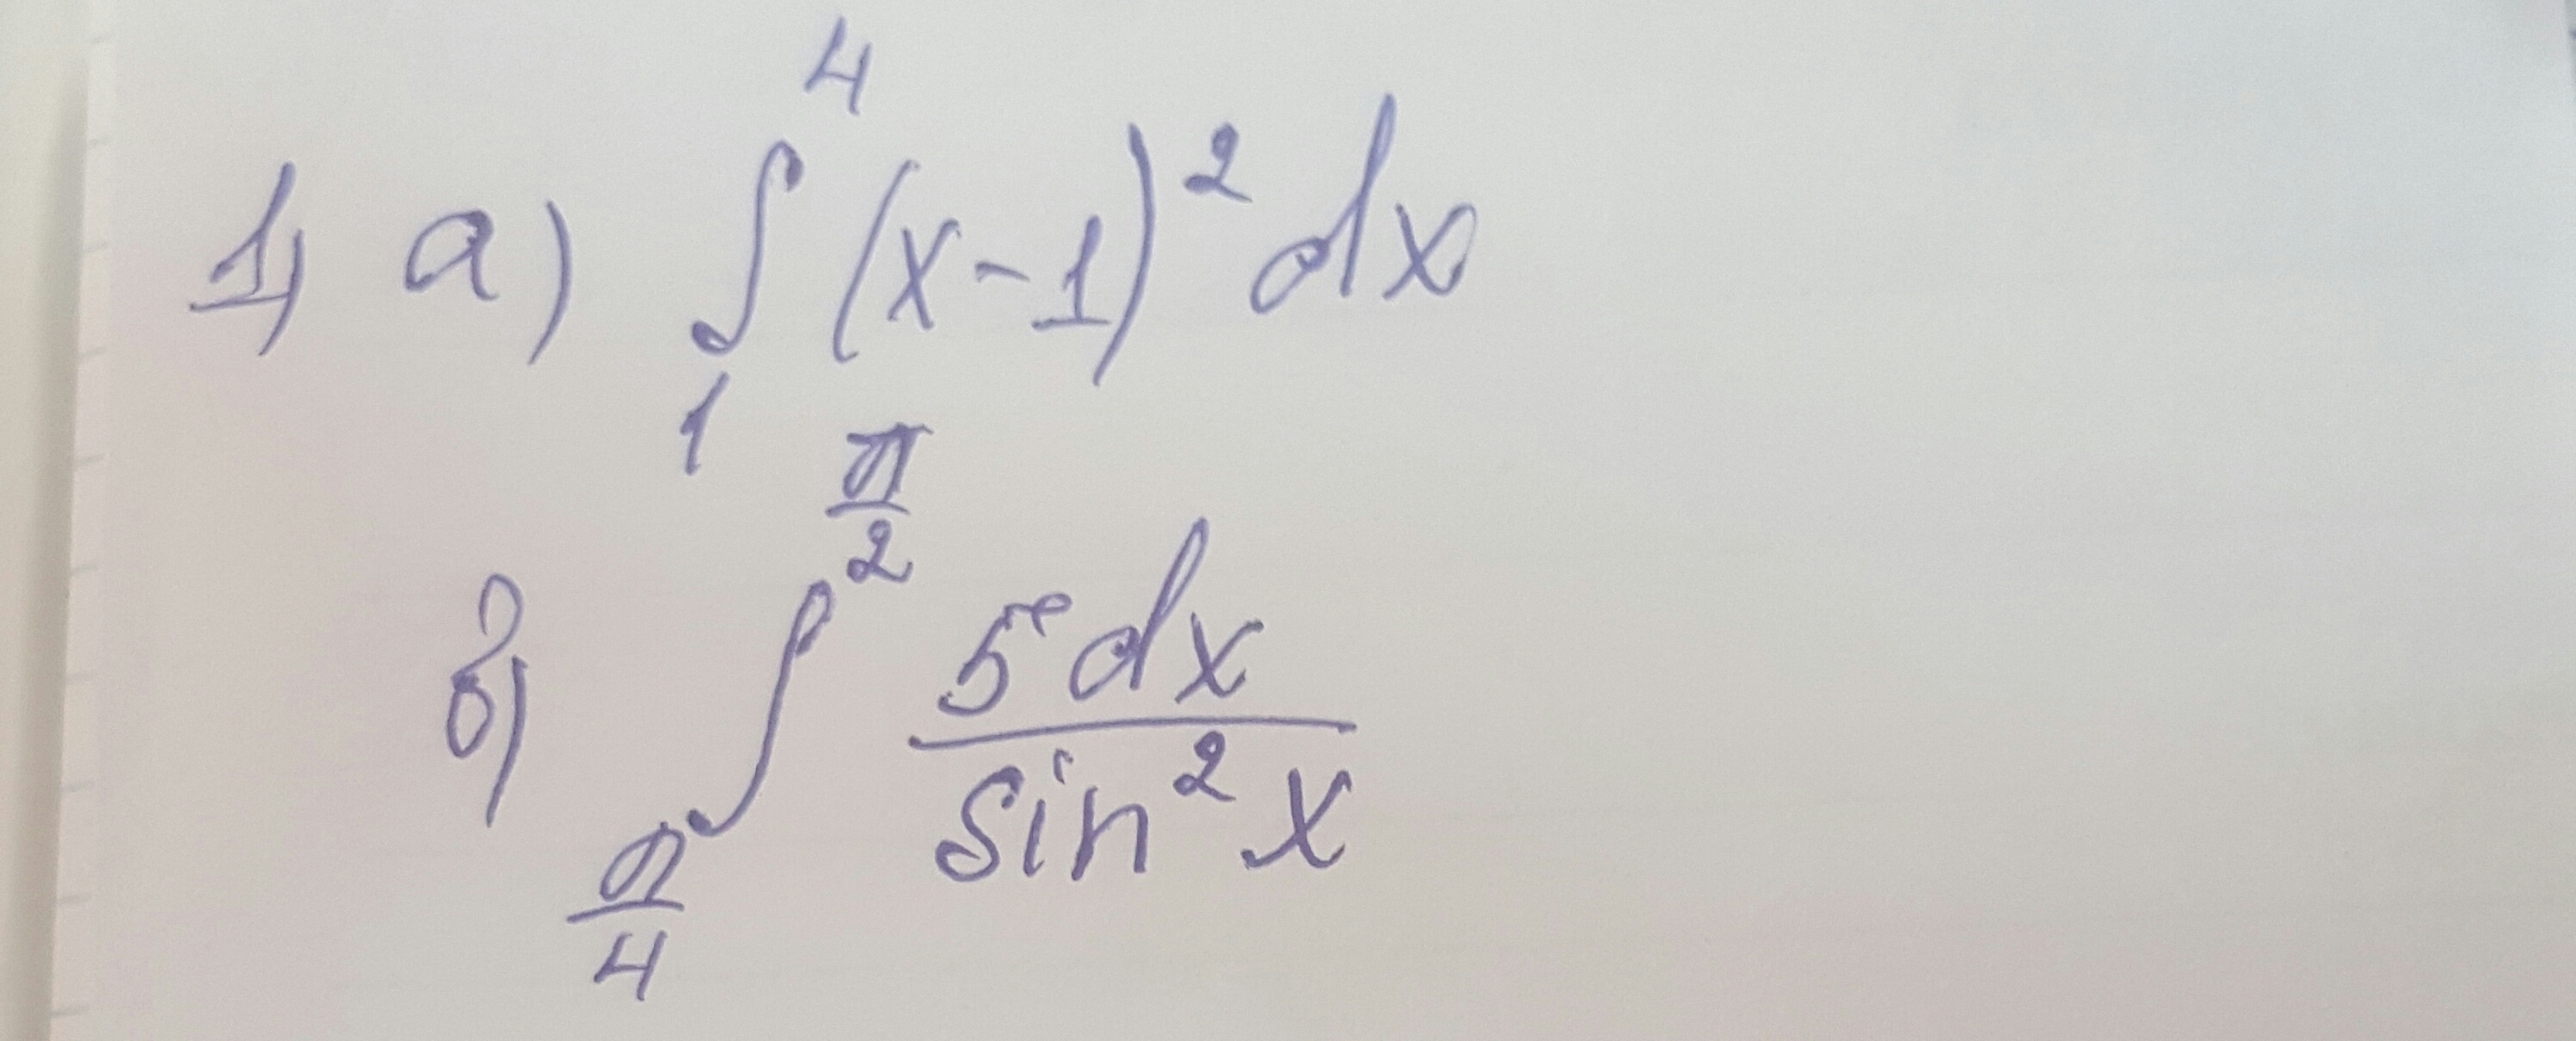 1) а) ∫₁⁴ (x-1)² dx
б) ∫_{π/4}^{π/2} 5dx / sin² x